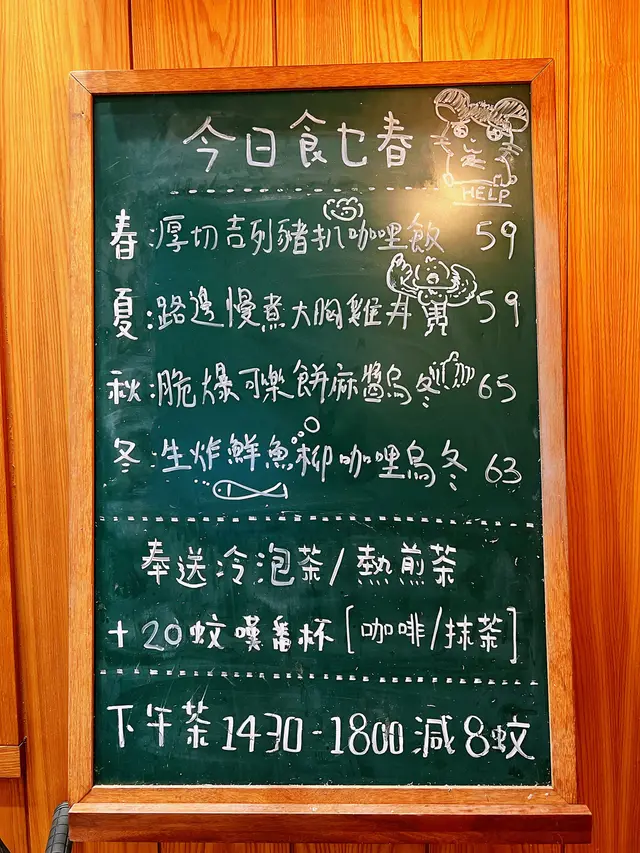 今日食乜春
HELP
春:厚切吉列豬扒咖哩飯 59
夏:路邊慢煮大胸雞丼 59
秋:脆爆可樂餅麻醬烏冬 65
冬:生炸鮮魚柳咖哩烏冬 63
奉送冷泡茶/熱煎茶
+20蚊嘆番杯[咖啡/抹茶]
下午茶1430-1800減8蚊